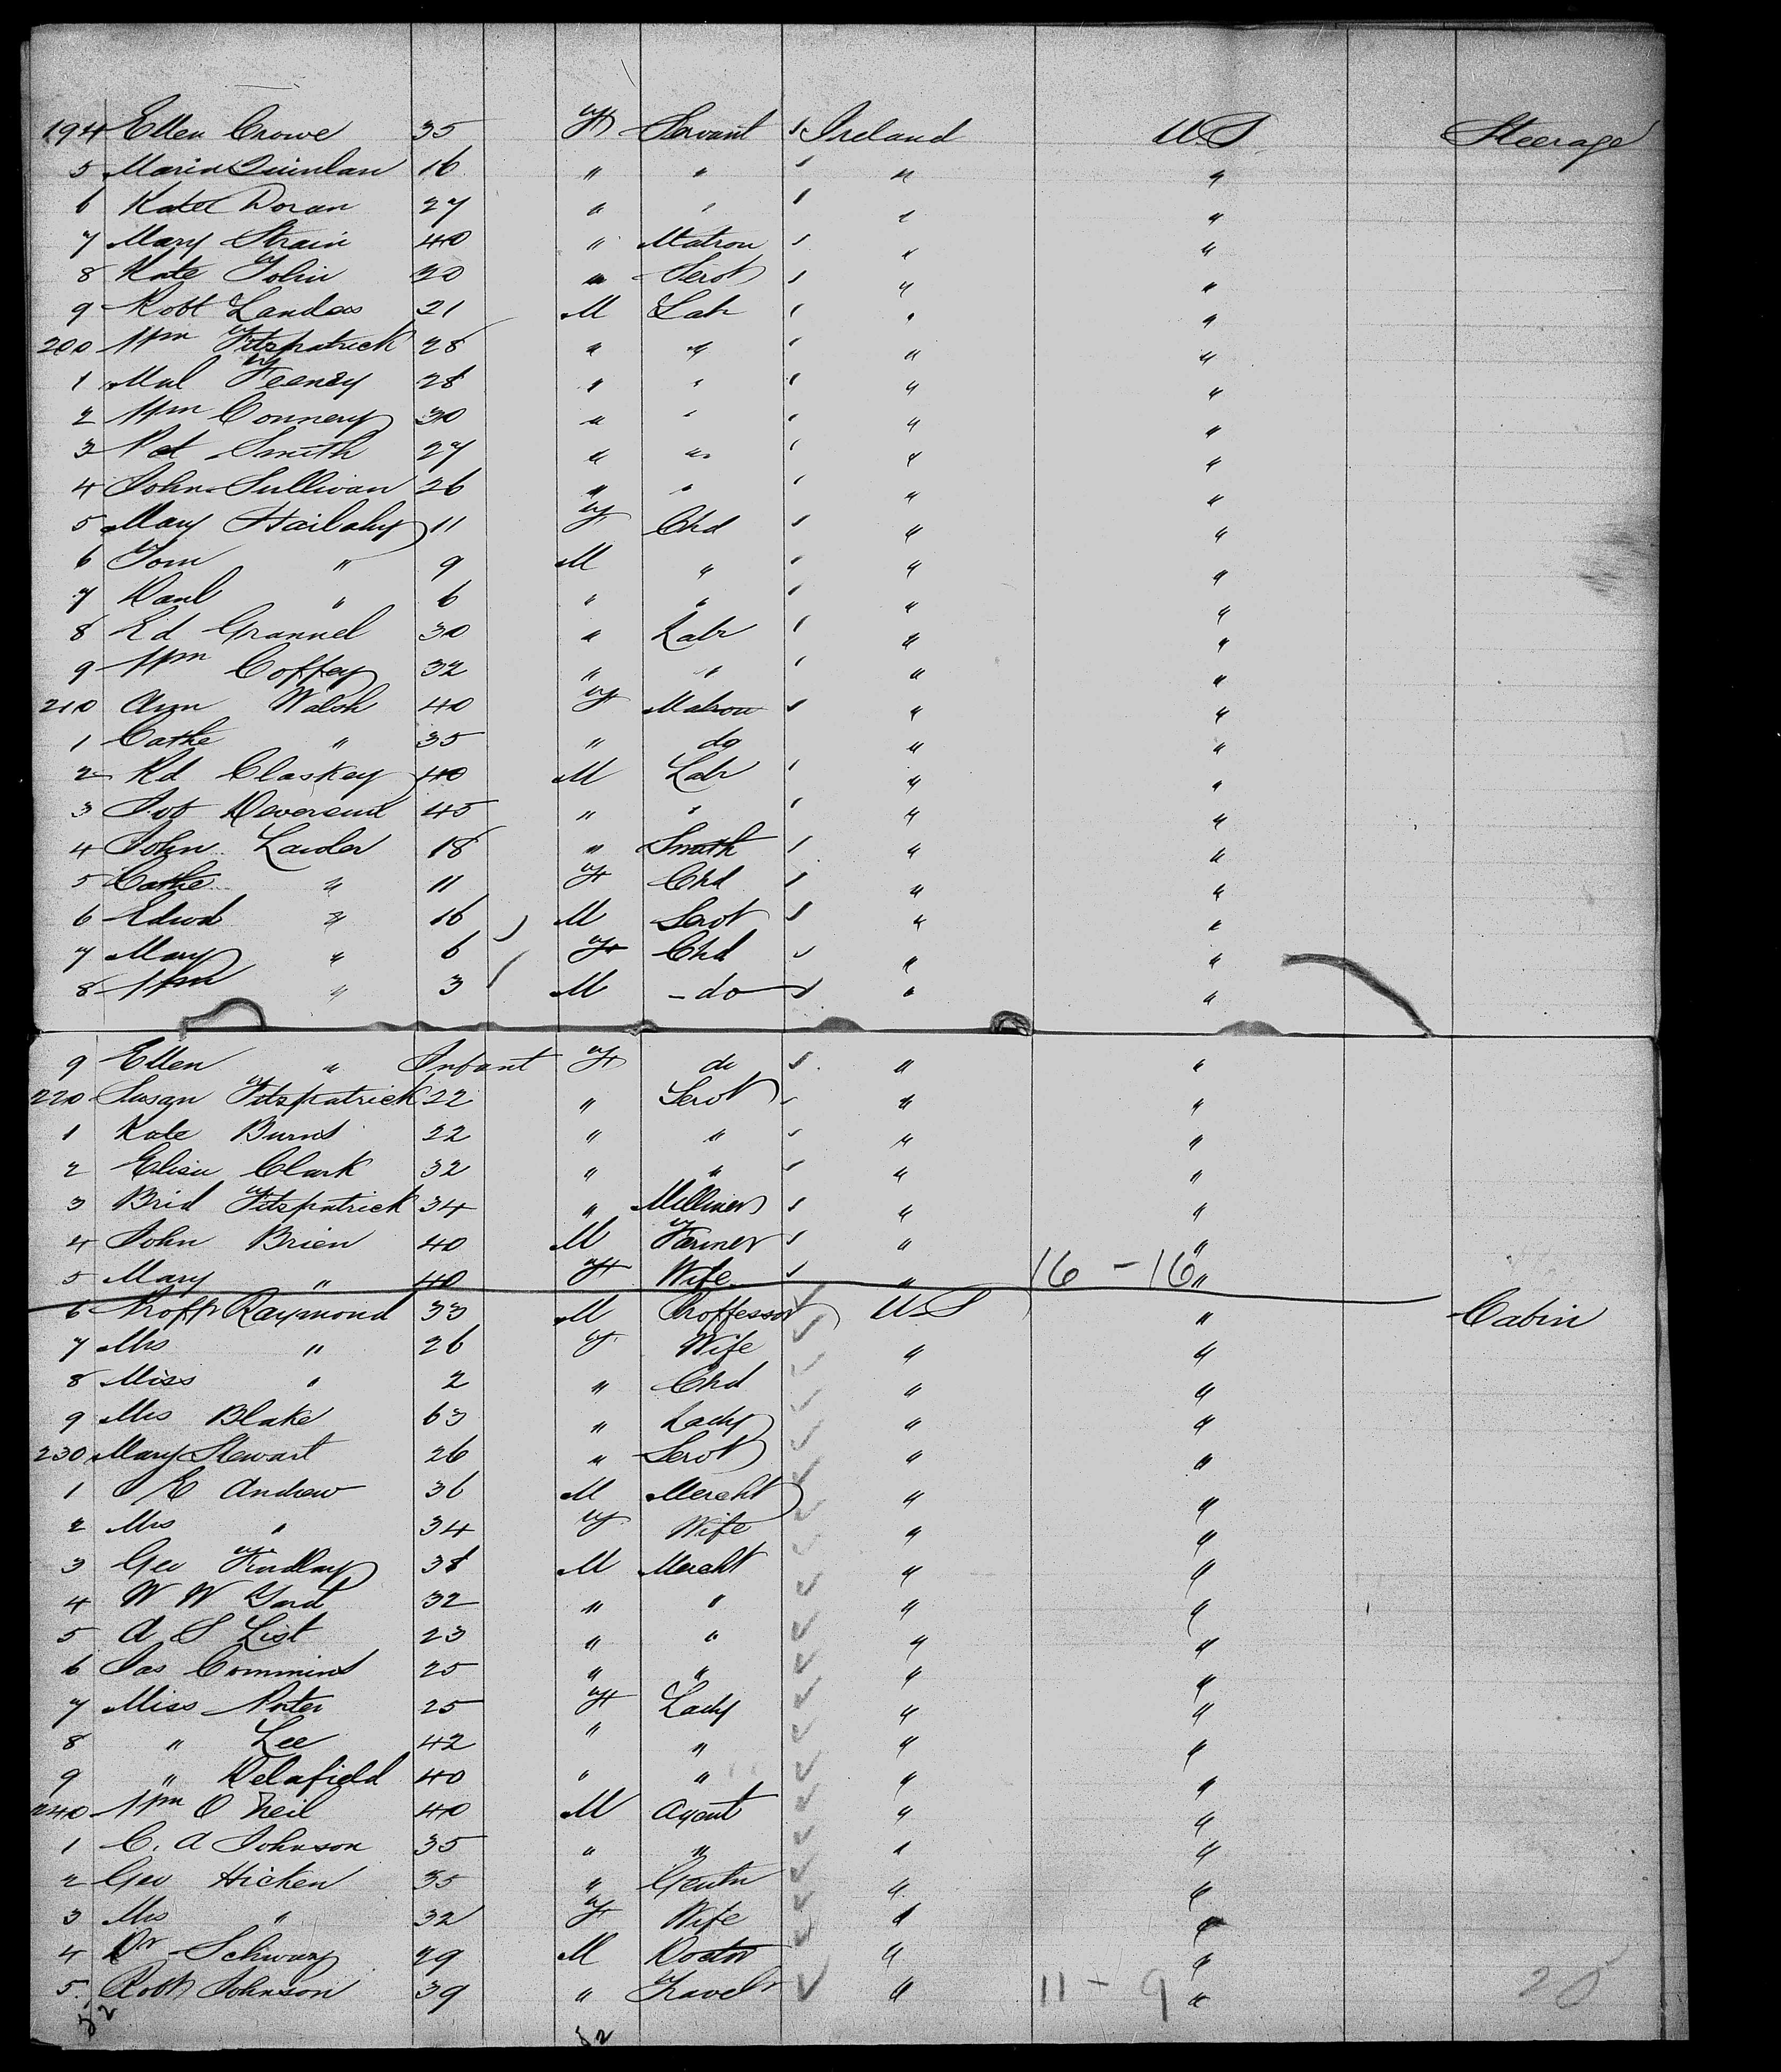 194 Ellen Crowe 35 F Servant Ireland U.S Steerage
5 Maria Quinlan 16 " " " "
6 Kate Doran 27 " " " "
7 Mary Strain 40 " Matron " "
8 Kate Tobin 20 " Servt " "
9 Robt Landes 21 M Labr " "
200 Wm Fitzpatrick 28 " " " "
1 Mal Feeney 28 " " " "
2 Wm Connery 30 " " " "
3 Pat Smith 27 " " " "
4 John Sullivan 26 " " " "
5 Mary 11 F Chd " "
6 Tom " 9 M " " "
7 Danl " 6 " " " "
8 Ed Grannel 30 " Labr " "
9 Wm Coffey 32 " " " "
210 Ann Walsh 40 F Matron " "
1 Cathe " 35 " do " "
2 Rd Claskey 40 M Labr " "
3 45 " " " "
4 John Lawler 18 " Smith " "
5 Cathe " 11 F Chd " "
6 Edwd " 16 M Servt " "
7 Mary " 6 F Chd " "
8 Wm " 3 M - do " "
9 Ellen " Infant F do " "
220 Susan Fitzpatrick 22 " Servt " "
1 Kate Burns 22 " " " "
2 Eliza Clark 32 " " " "
3 Brid Fitzpatrick 34 " Milliner " "
4 John Brien 40 M Farmer " "
5 Mary " 40 F Wife " 16 - 16 "
6 Proffr Raymond 33 M Proffessor U S " Cabin
7 Mrs " 26 F Wife " "
8 Miss " 2 " Chd " "
9 Mrs Blake 63 " Lady " "
230 Mary Stewart 26 " Servt " "
1 J E Andrew 36 M Mercht " "
2 Mrs " 34 F Wife " "
3 Geo Findlay 38 M Mercht " "
4 W W 32 " " " "
5 A S List 23 " " " "
6 Jas Commins 25 " " " "
7 Miss Porter 25 F Lady " "
8 " Lee 42 " " " "
9 " Delafield 40 " " " "
240 Wm O Neil 40 M Agent " "
1 C. A Johnson 35 " " " "
2 Geo Hicken 35 " Gentn " "
3 Mrs " 32 F Wife " "
4 Dr Schwarz 29 M Doctor " "
5 Robt Johnson 39 " Travelr " 11 - 9 " 20
52 52